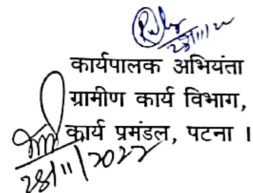 28/11/22
कार्यपालक अभियंता
ग्रामीण कार्य विभाग,
कार्य प्रमंडल, पटना ।
28/11/2022